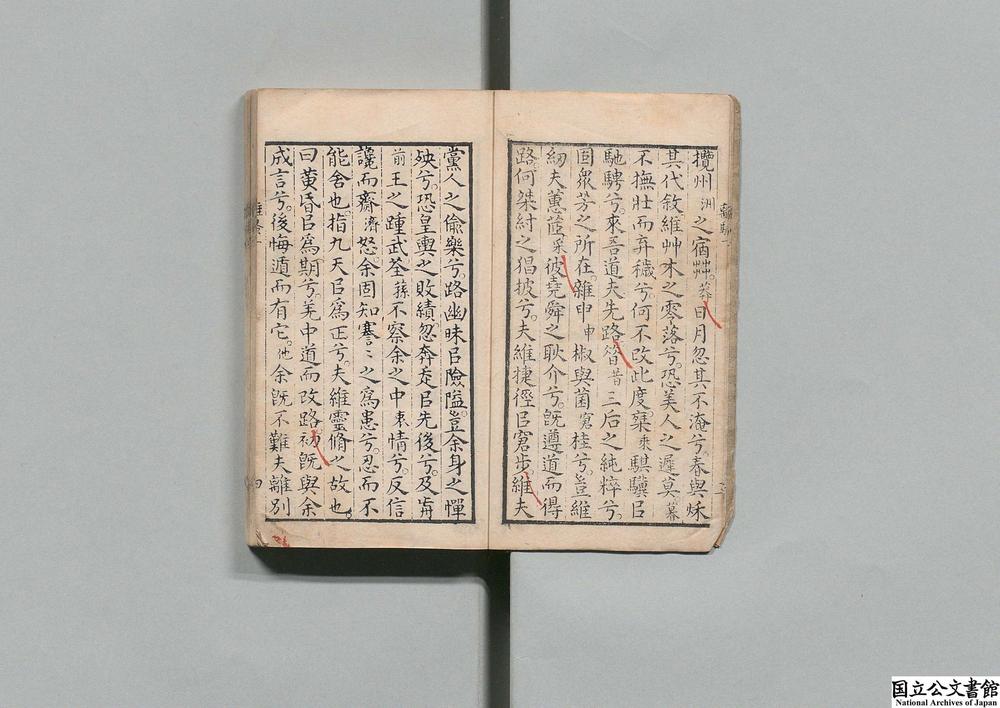 攬州洲之宿艸莽日月忽其不淹兮春與秌
其代敘維艸木之零落兮恐美人之遲莫暮
不撫壯而弃穢兮何不改此度椉乘騏驥㠯
馳騁兮來吾道夫先路簪昔三后之純粹兮
固眾芳之所在雜申申椒與菌窘桂兮豈維
紉夫蕙茝采彼堯舜之耿介兮旣遵道而得
路何桀紂之猖披兮夫維捷徑㠯窘步維夫
黨人之偷樂兮路幽昧㠯險隘豈余身之憚
殃兮恐皇輿之敗績忽奔走㠯先後兮及歬
前王之踵武荃蓀不察余之中衷情兮反信
讒而齋濟怒余固知謇〻之爲患兮忍而不
能舍也指九天㠯爲正兮夫維靈脩之故也
曰黃昏㠯爲期兮羌中道而改路初旣與余
成言兮後悔遁而有它他余旣不難夫離別
離騷
四
国立公文書館
National Archives of Japan